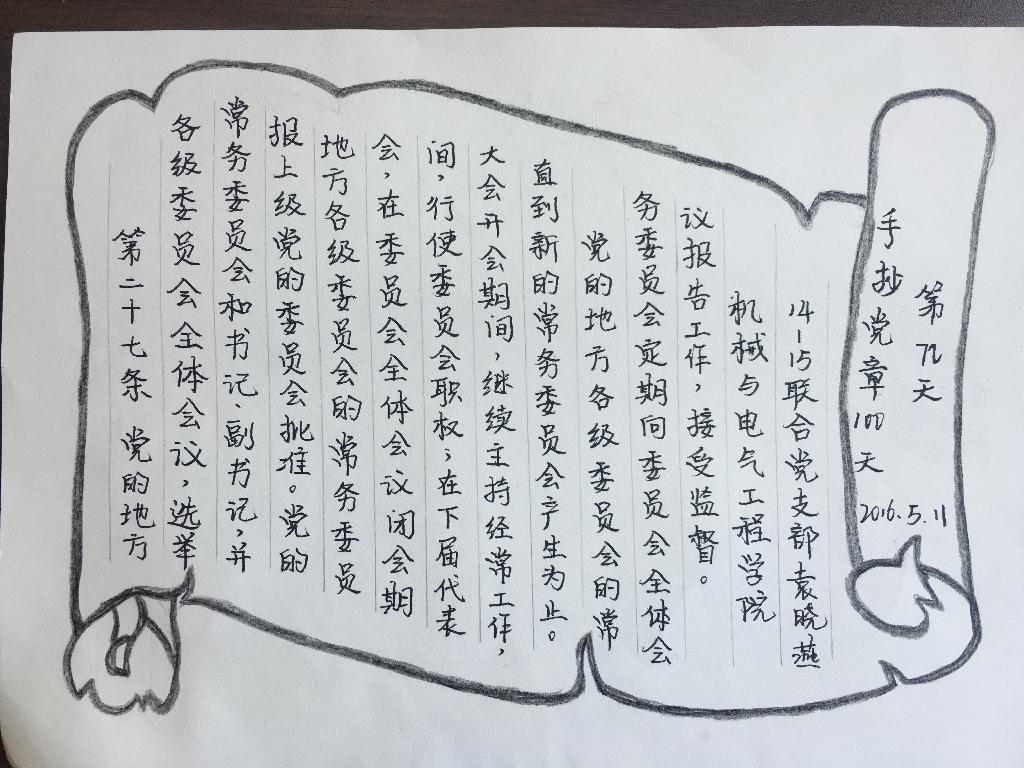 第二十七条 党的地方
各级委员会全体会议，选举
常务委员会和书记、副书记，并
报上级党的委员会批准。党的
地方各级委员会的常务委员
会，在委员会全体会议闭会期
间，行使委员会职权；在下届代表
大会开会期间，继续主持经常工作，
直到新的常务委员会产生为止。
党的地方各级委员会的常
务委员会定期向委员会全体会
议报告工作，接受监督。
机械与电气工程学院
14-15联合党支部袁晓燕
手抄党章100天
第72天
2016.5.11